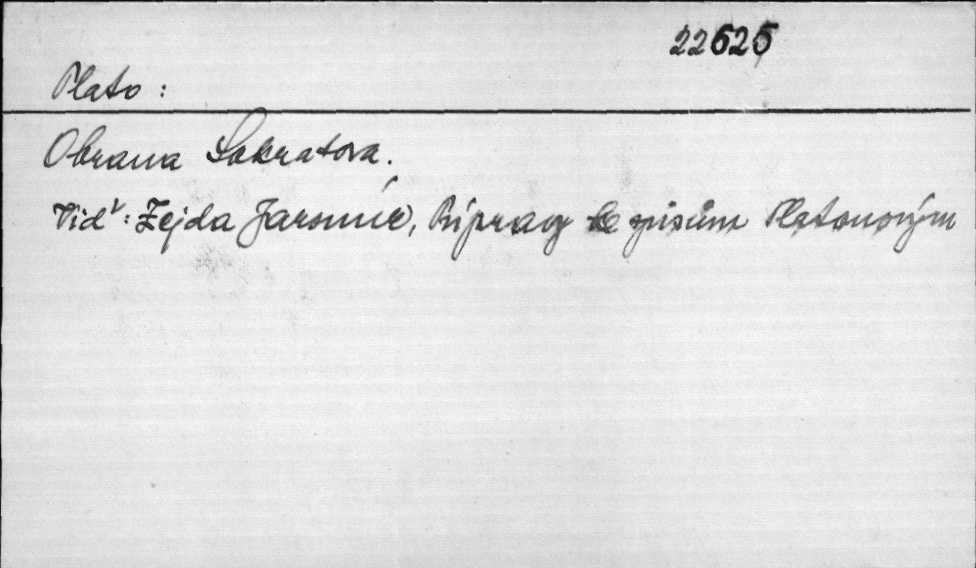 22625
Plato :
Obrana Sokratova.
Viď: Zejda Jaromír, Přípravy ke spisům Platonovým